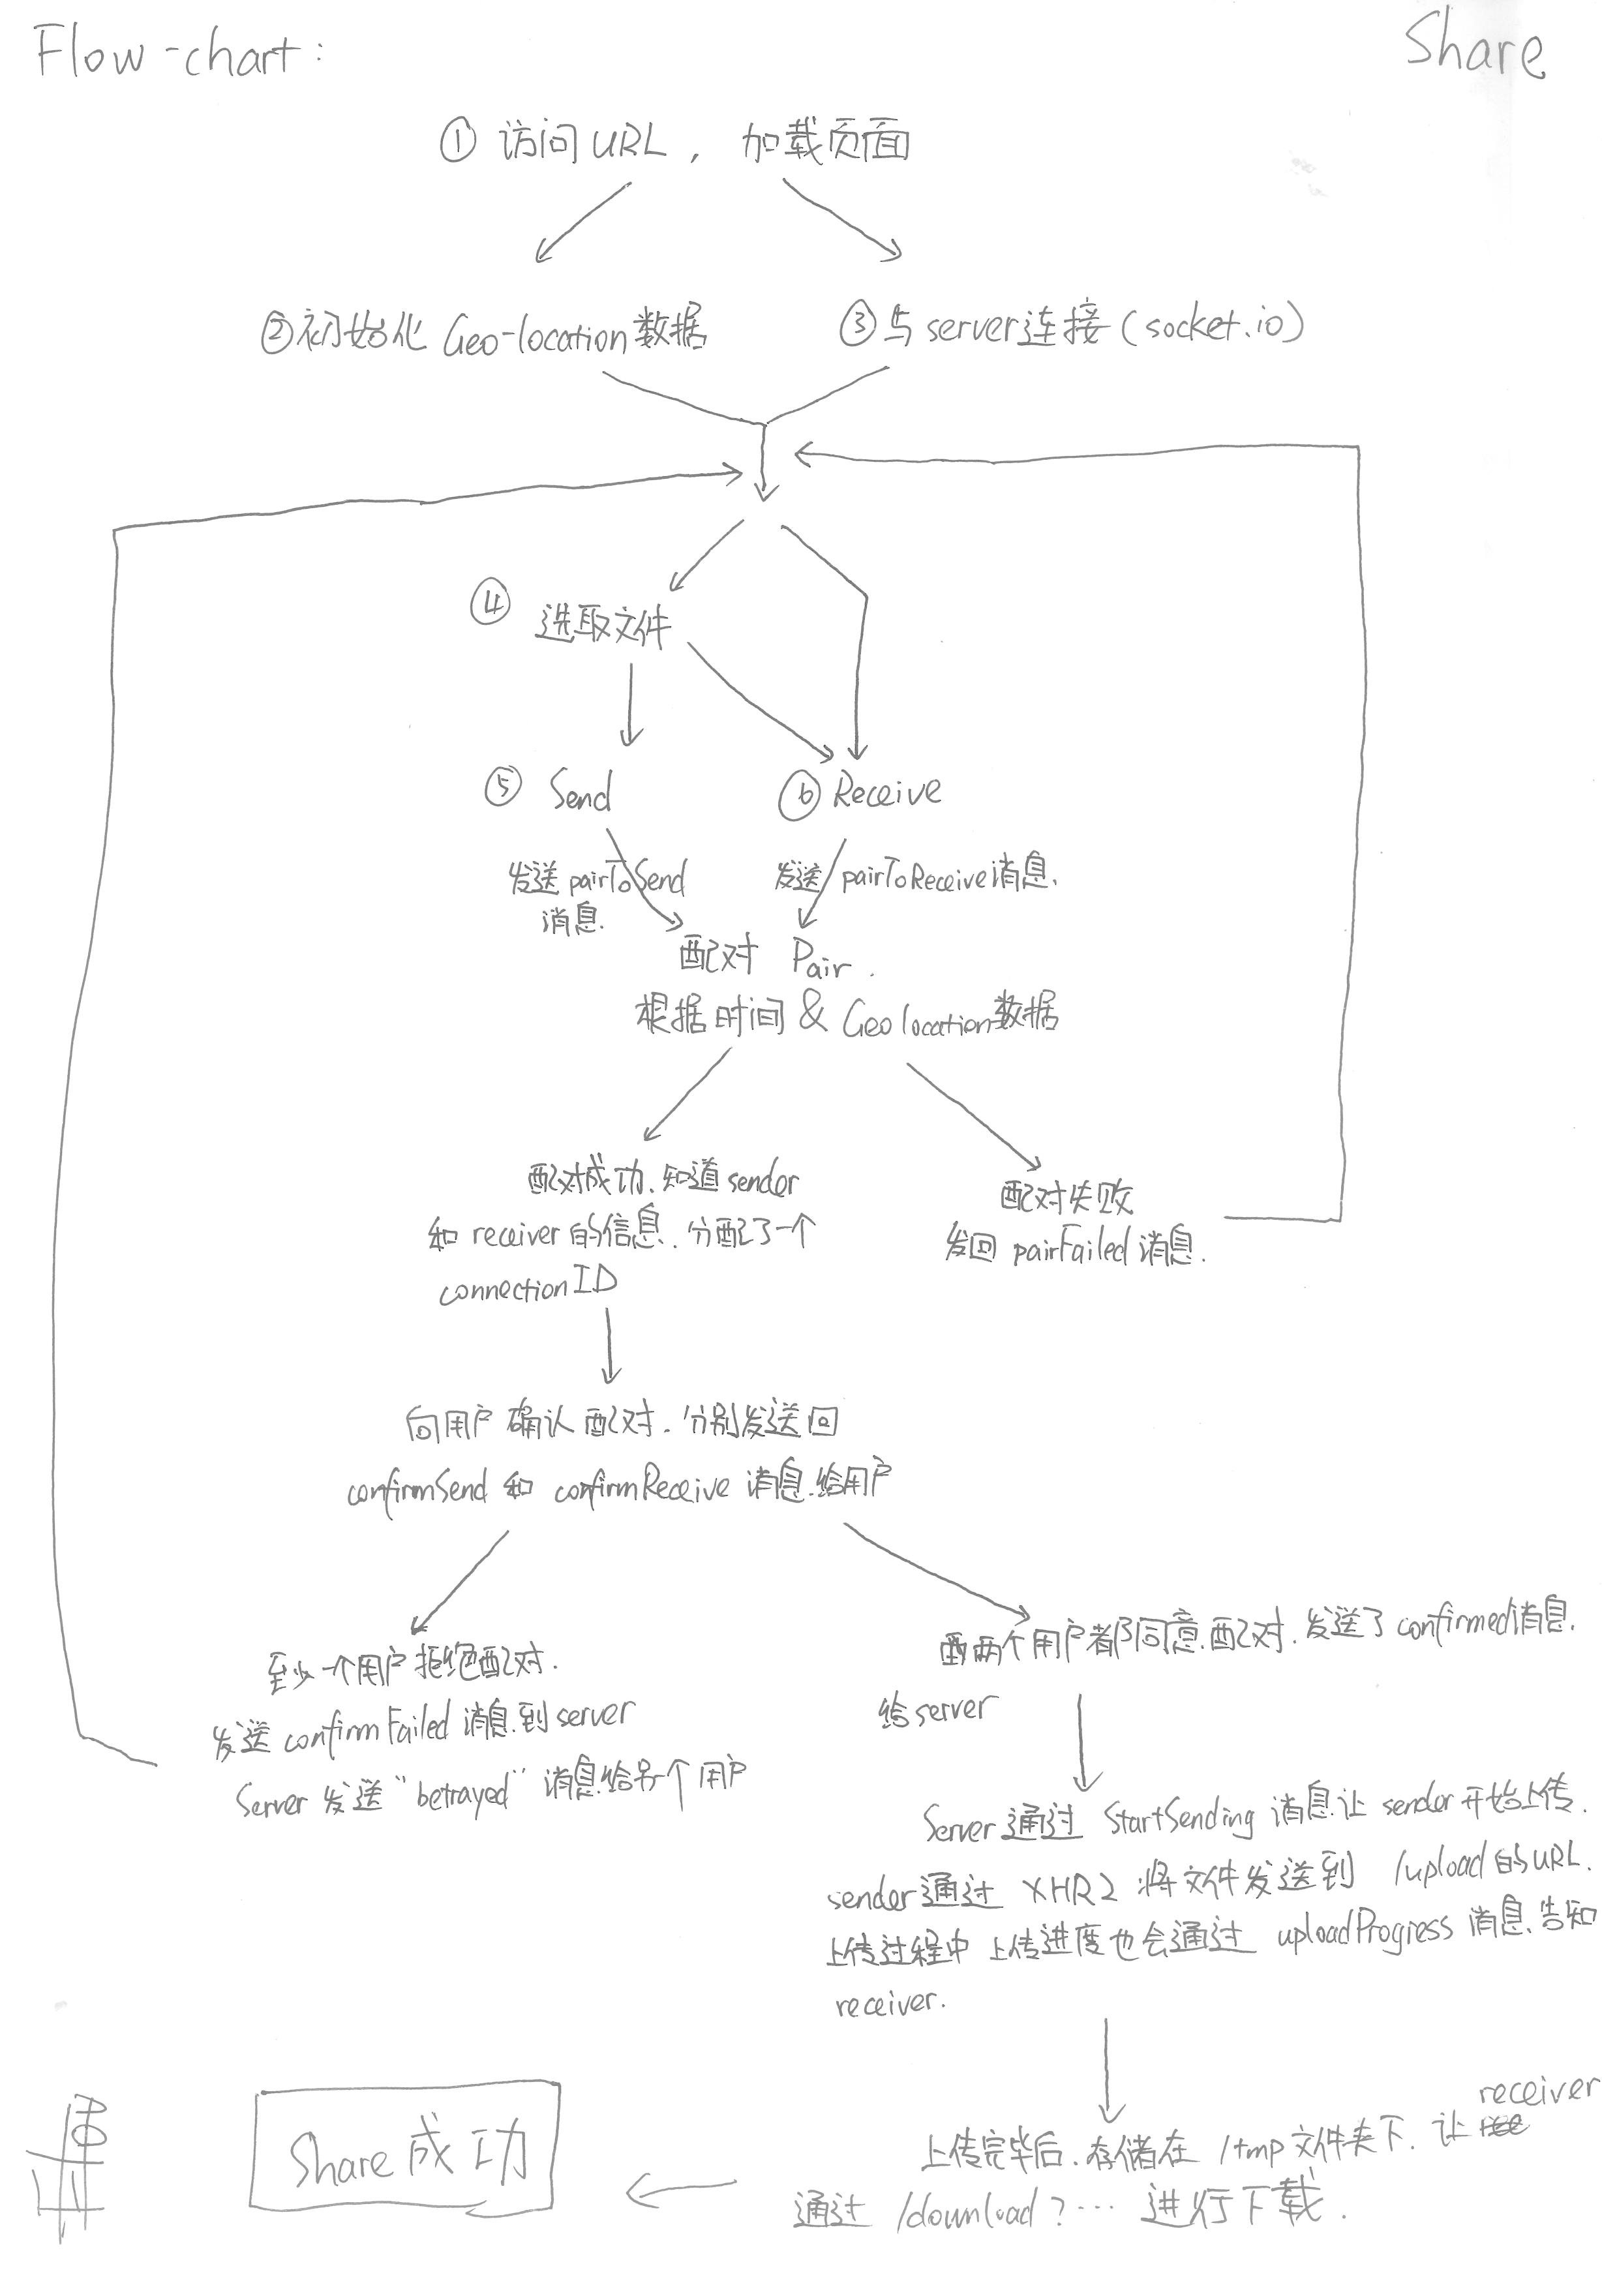 Flow-chart:
Share
① 访问URL, 加载页面
②初始化 Geo-location数据
③与server连接(socket.io)
④ 选取文件
⑤ Send
⑥ Receive
发送 pairToSend
消息.
发送 pairToReceive消息.
配对 Pair.
根据时间 & Geolocation数据
配对成功.知道sender
和 receiver的信息.分配了一个
connectionID
配对失败
发回 pairFailed 消息.
向用户确认配对.分别发送回
confirmSend 和 confirmReceive 消息给用户
至少一个用户拒绝配对.
发送 confirmFailed 消息到server
Server 发送 "betrayed" 消息给另一个用户
两个用户都同意配对.发送了confirmed消息.
给server
Server通过 StartSending 消息让 sender开始上传.
sender通过 XHR2 将文件发送到 /upload的URL.
上传过程中 上传进度也会通过 uploadProgress 消息告知
receiver.
receiver
上传完毕后.存储在 /tmp文件夹下.让
通过 /download?... 进行下载.
Share成功